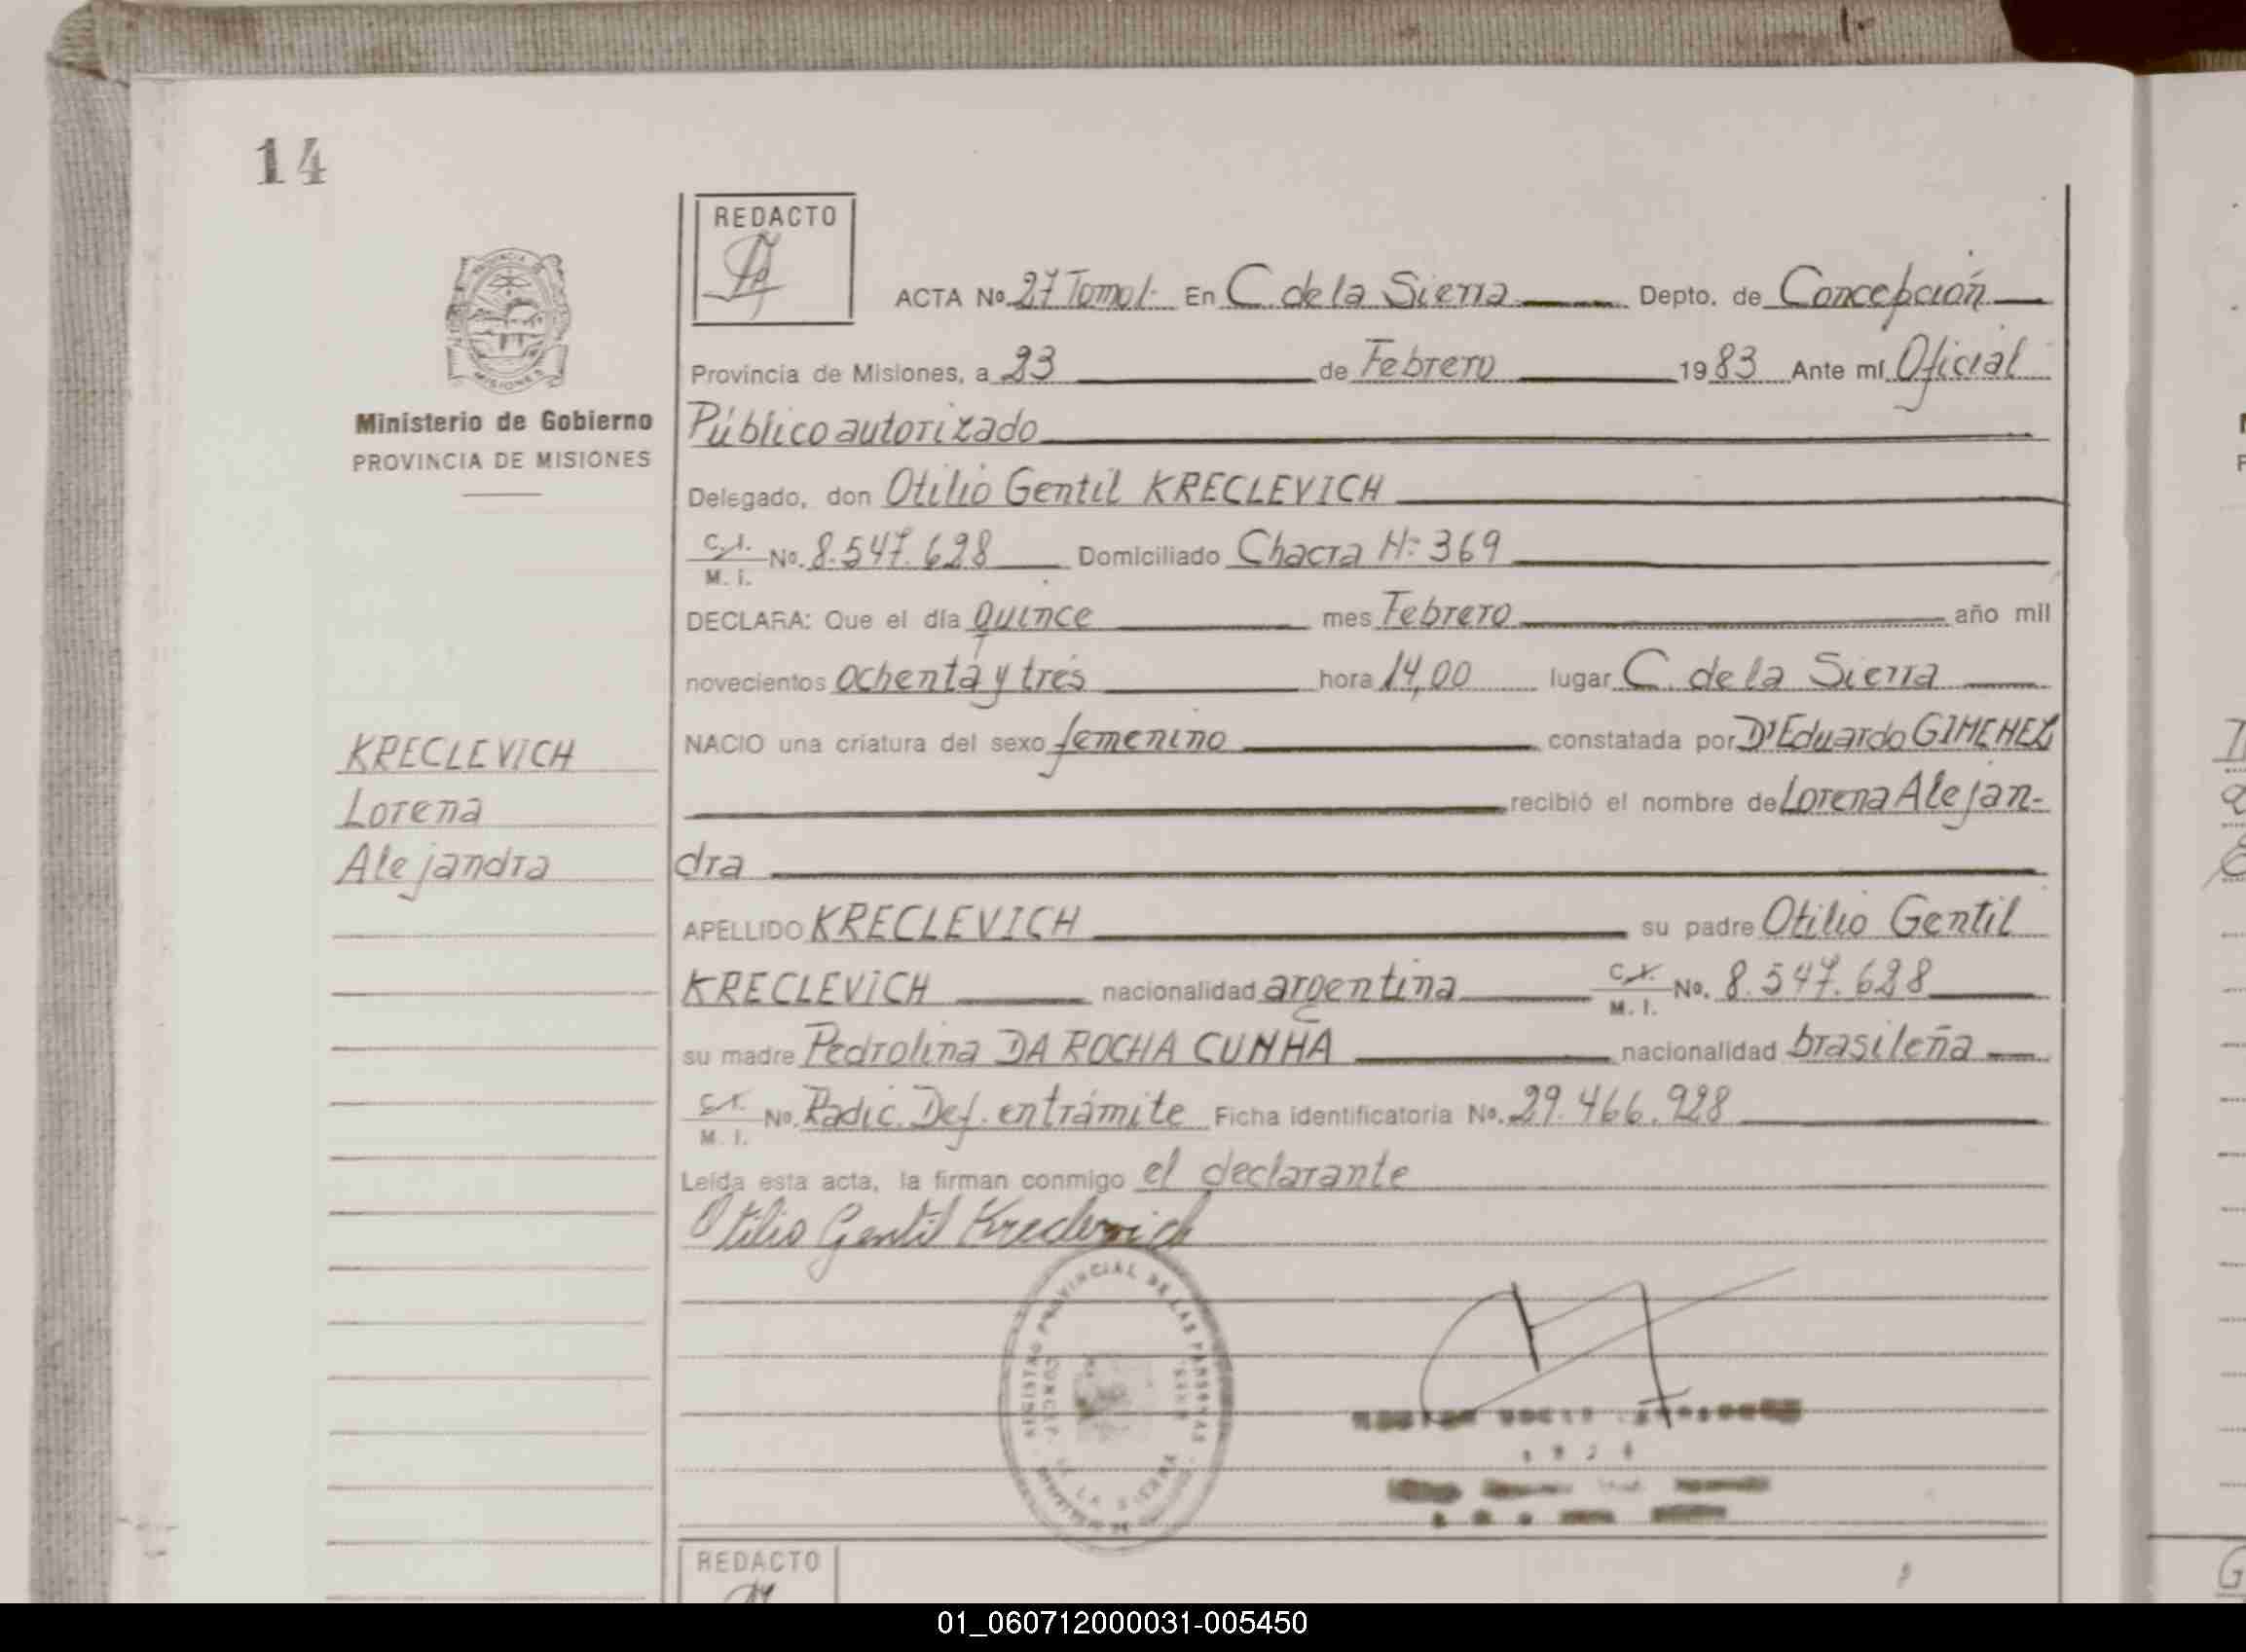 14
REDACTO
ACTA No. 27 Tomo I. En C. de la Sierra Depto. de Concepción
Provincia de Misiones, a 23 de Febrero 1983 Ante mí Oficial
Ministerio de Gobierno
PROVINCIA DE MISIONES
Público autorizado
Delegado, don Otilio Gentil KRECLEVICH
C. I. M. I. No. 8.547.628 Domiciliado Chacra N: 369
DECLARA: Que el día quince mes Febrero año mil
novecientos ochenta y tres hora 14,00 lugar C. de la Sierra
NACIO una criatura del sexo femenino constatada por Dr Eduardo GIMENEZ
recibió el nombre de Lorena Alejan-
dra
KRECLEVICH
Lorena
Alejandra
APELLIDO KRECLEVICH su padre Otilio Gentil
KRECLEVICH nacionalidad argentina C. I. M. I. No. 8.547.628
su madre Pedrolina DA ROCHA CUNHA nacionalidad brasileña
C. I. M. I. No. Radic. Def. en trámite Ficha identificatoria No. 29.466.928
Leída esta acta, la firman conmigo el declarante
Otilio Gentil Kreclevich
REGISTRO PROVINCIAL DE LAS PERSONAS
DE LA SIERRA
REDACTO
01_060712000031-005450